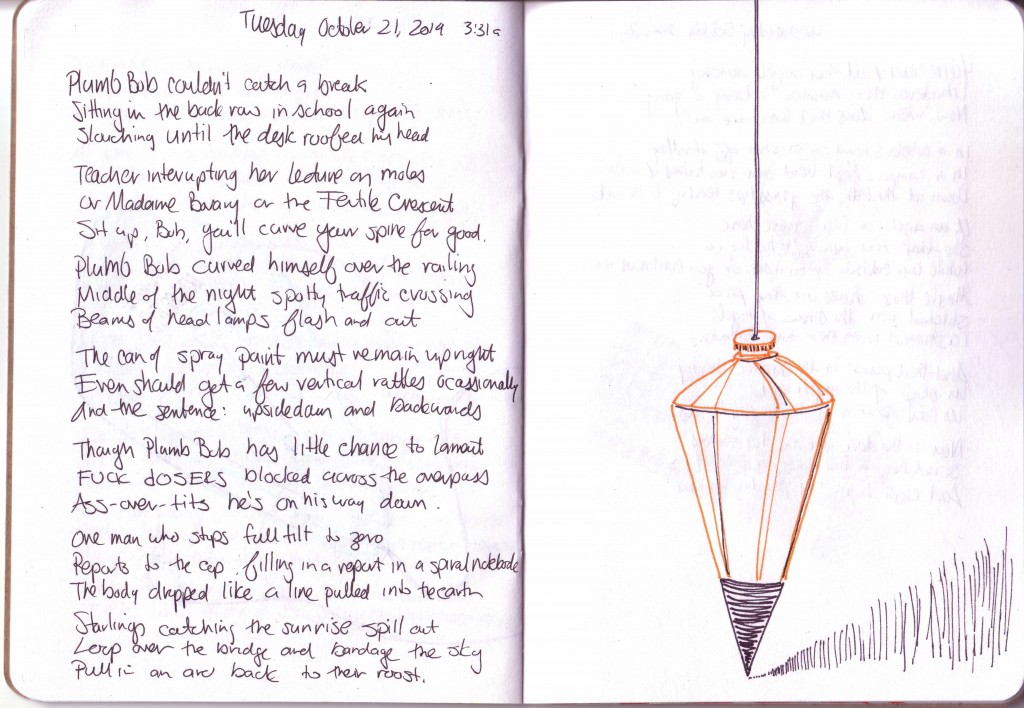 Tuesday October 21, 2019 3:31a
Plumb Bob couldn't catch a break
Sitting in the back row in school again
Slouching until the desk roofed his head
Teacher interrupting her lecture on moles
Or Madame Bovary or the Fertile Crescent
Sit up, Bob, you'll curve your spine for good.
Plumb Bob curved himself over the railing
Middle of the night spotty traffic crossing
Beams of head lamps flash and out
The can of spray paint must remain upright
Even should get a few vertical rattles ocassionally
And the sentence: upsidedown and backwards
Though Plumb Bob has little chance to lament
FUCK dOSERS blocked across the overpass
Ass-over-tits he's on his way down.
One man who stops full tilt to zero
Reports to the cop filling in a report in a spiral notebook
The body dropped like a line pulled into the earth
Starlings catching the sunrise spill out
Loop over the bridge and bandage the sky
Pull in an arc back to their roost.